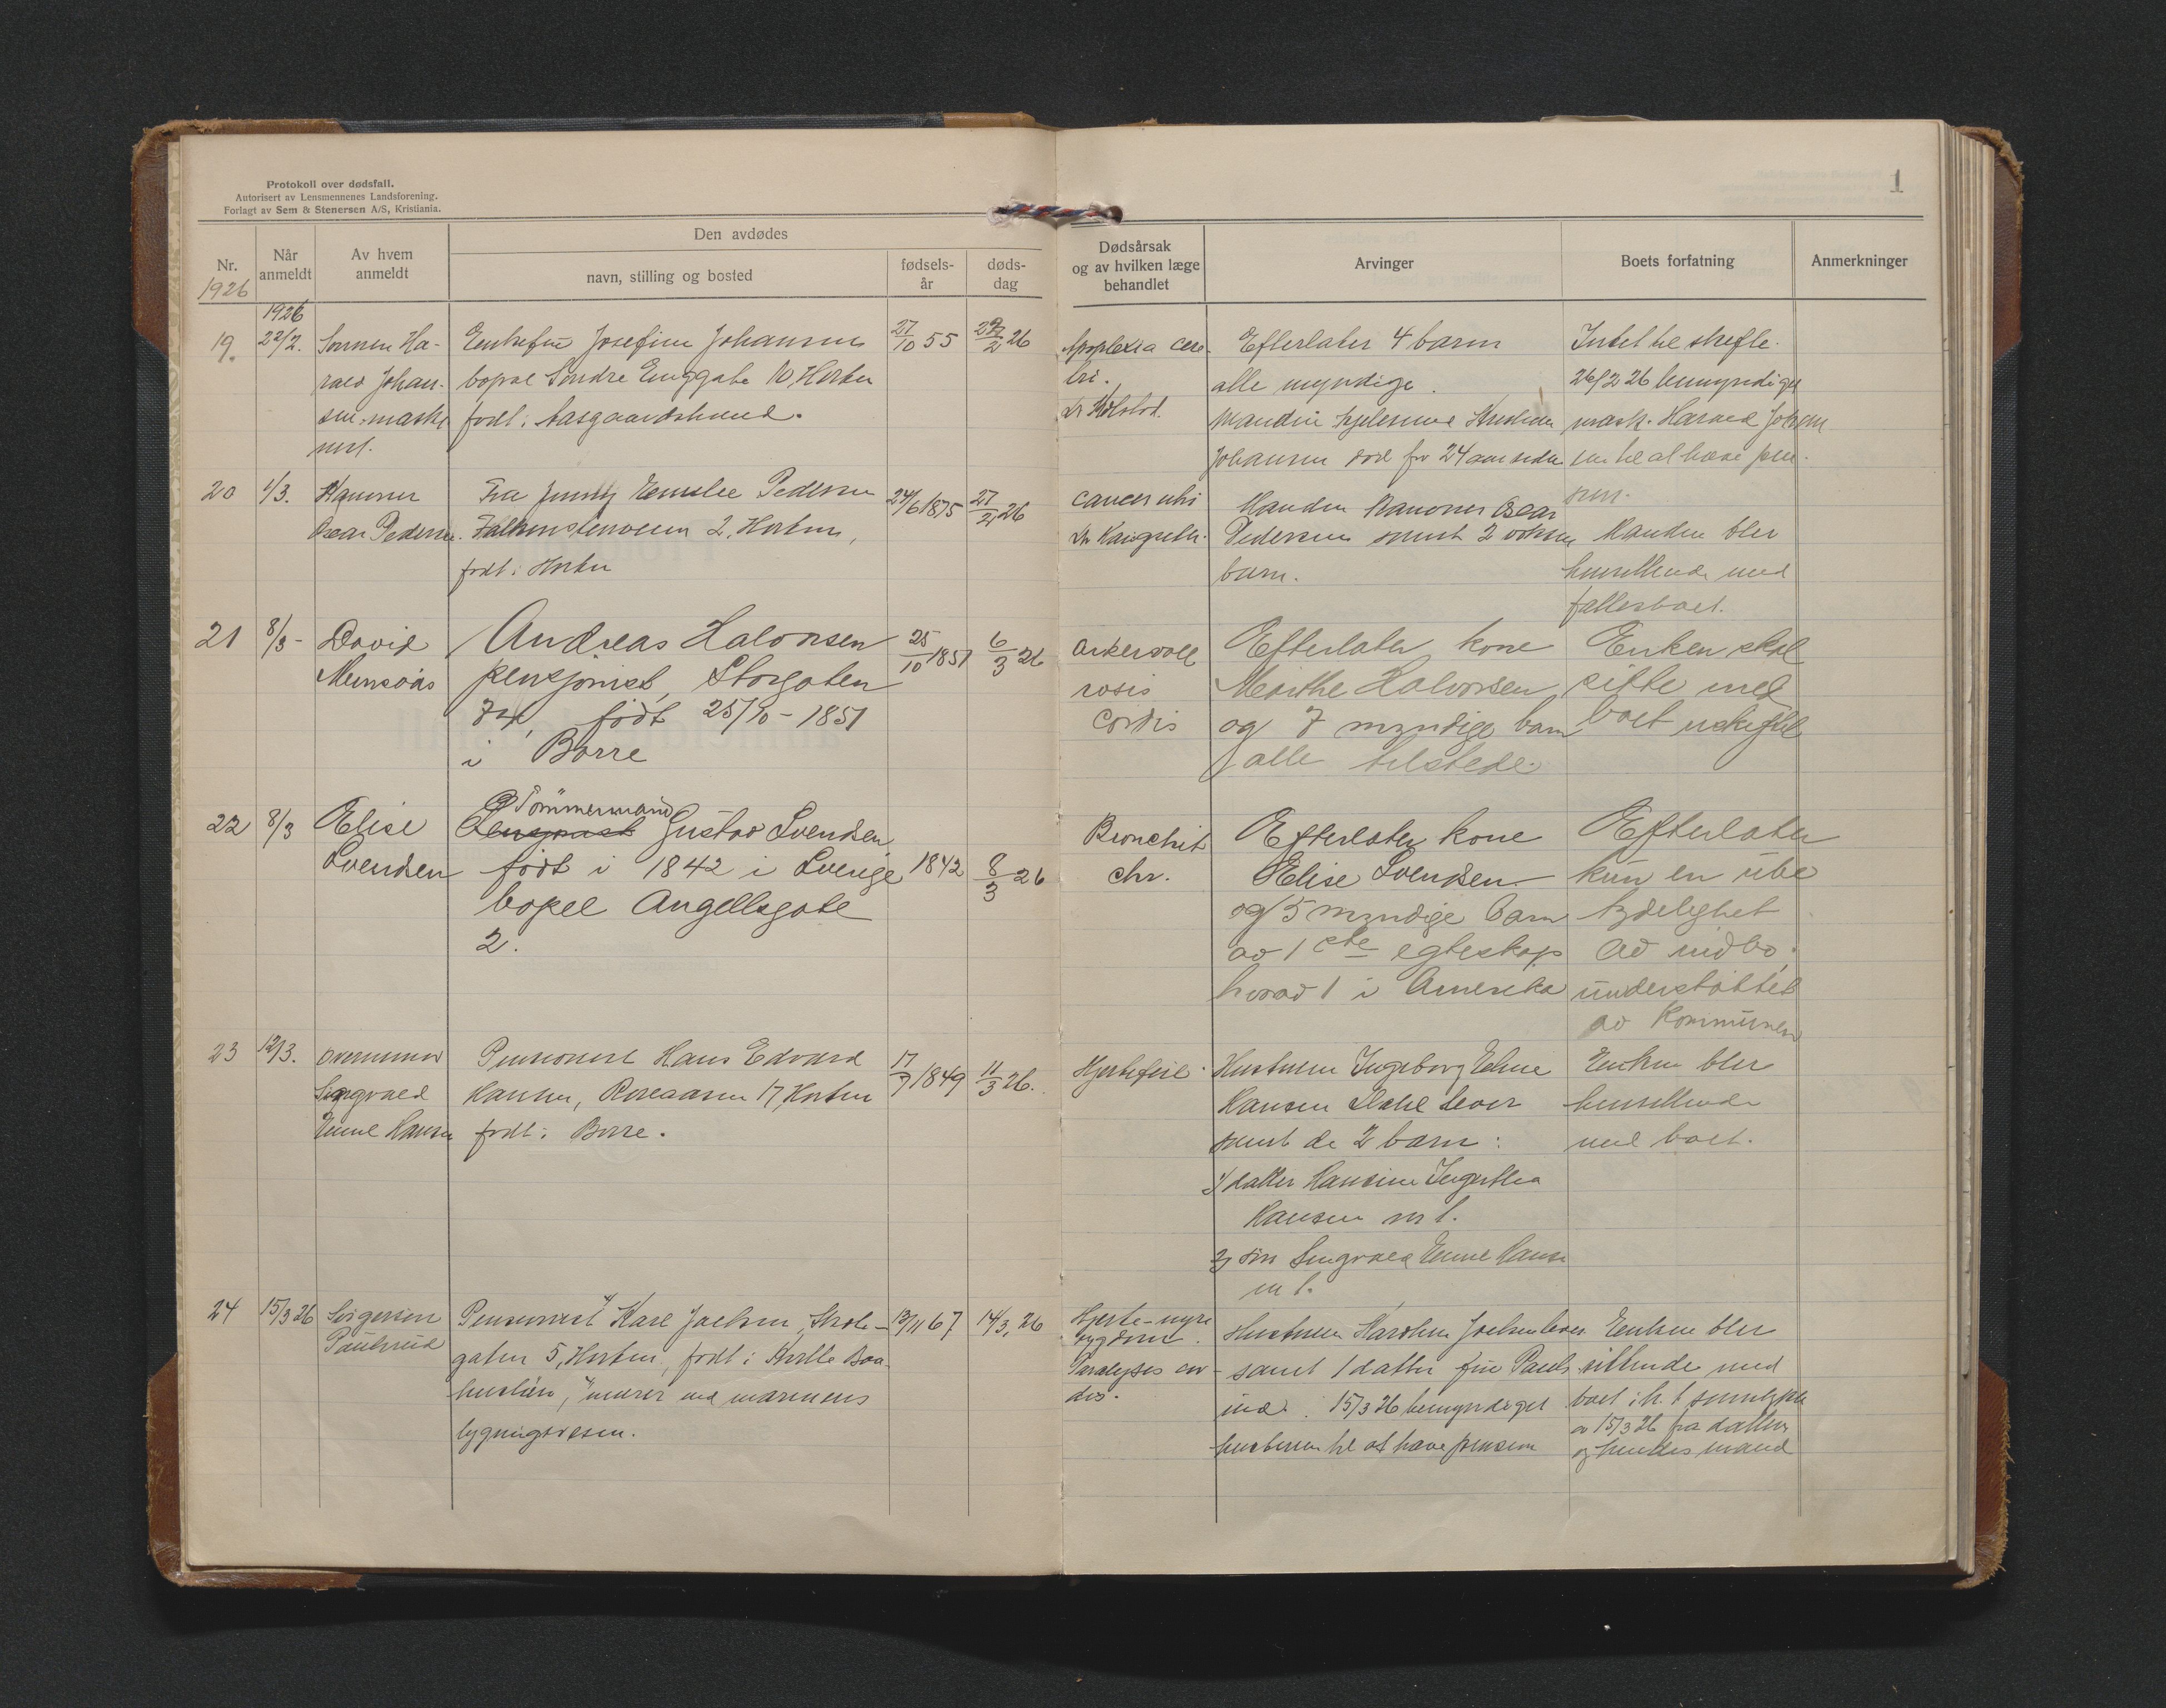 Protokoll over dødsfall.
Autorisert av Lensmennenes Landsforening.
Forlagt av Sem & Stenersen A/S, Kristiania.
1
Nr.
1926
Når
anmeldt
Av hvem
anmeldt
Den avdødes
navn, stilling og bosted
fødsels-
år
døds-
dag
Dødsårsak
og av hvilken læge
behandlet
Arvinger
Boets forfatning
Anmerkninger
19.
1926
22/2.
Sønnen Ha-
rald Johan-
sen, maski
nist.
Enkefru Josefine Johansen
bopæl Søndre Enggate 10, Horten
født i Aasgaardstrand.
27/10 55
22/2 26
Apoplexia cere-
bri.
Dr Holstad.
Efterlater 4 barn
alle myndige.
Manden Hjelmsmed Kristian
Johansen død for 24 aar siden
Intet til skifte.
26/2 26 bemyndiget
mask. Harald Johan
sen til at hæve pen-
sjon.
20
1/3.
Kanoner
Oscar Pedersen.
Fru Jenny Emelie Pedersen
Falkenstenveien 2, Horten,
født i Horten
24/6 1875
27/2 26
Cancer uteri
Manden Kanoner Oscar
Pedersen samt 2 voksne
barn.
Manden blir
hensittende med
fællesboet.
21
8/3-
David
Andreas Halvorsen
pensjonist, Storgaten
74, født 25/10-1851
i Borre
25/10 1851
6/3 26
Arteriosкle
rosis
Cordis
Efterlater kone
Marthe Halvorsen
og 7 myndige barn
alle tilstede.
Enken skal
sitte med
boet uskiftet
22
8/3
Elise
Svendsen
Tømmermand
Gustav Svendsen
født i 1842 i Sverige
bopel Angellsgate
2.
1842
8/3 26
Bronchit
chr.
Efterlater kone
Elise Svendsen
og 5 myndige barn
av 1ste egteskap
hvorav 1 i Amerika
Efterlater
kun en ube
tydelighet
av indbo,
understøttet
av Kommunen
23
12/3.
Sigvald
Emil Hansen
Pensionist Hans Edvard
Hansen, Roreaasen 17, Horten
født i Borre.
17/7 1849
11/3 26.
Hjertefeil.
Hustruen Ingeborg Eline
Hansen lever
samt de 2 barn:
1) datter Hansine Ingertha
Hansen m l.
2) søn Singvald Emil Hansen
m l.
Enken blir
hensittende
med boet.
24
15/3 26
Svigersøn
Paulsrud
Pensionist Karl Joelsen, Skole-
gaten 5, Horten, født i Baa-
huslän, murer ved marinens
bygningsvesen.
13/11 67
14/3, 26
Hjerte-nyre
sygdom.
Paralysis cor-
dis.
Hustruen Karoline Joelsen lever
samt 1 datter fru Pauls
rud. 15/3 26 bemyndiget
hustruen til at hæve pension
Enken blir
sittende med
boet i h. t samtykke
av 15/3 26 fra datter
og hendes mand